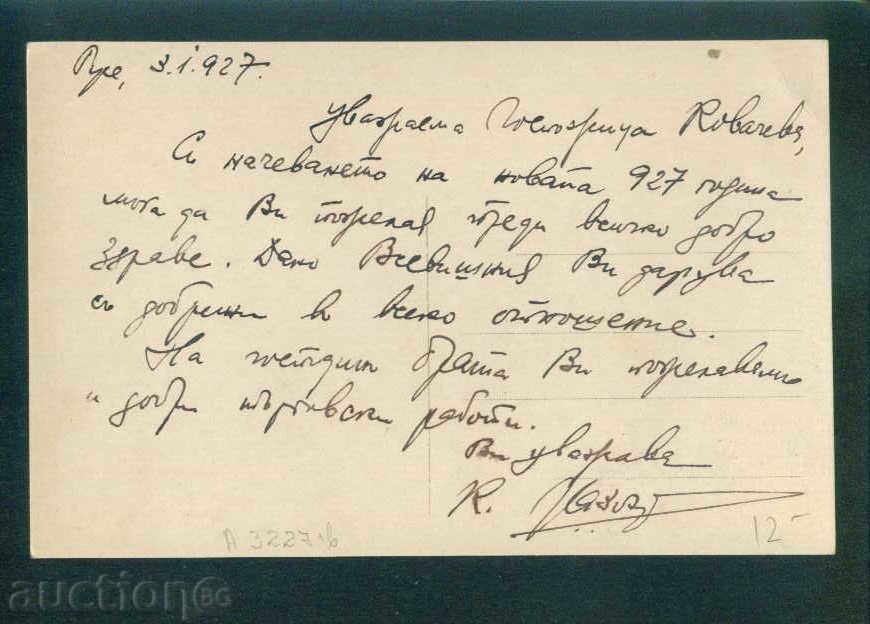 3.I.927.
Уважаема Госпожица Ковачева,
Съ начеването на новата 927 година
мога да Ви пожелая преди всичко добро
здраве. Дано Всевишния Ви дарува
съ добрини въ всяко отношение.
На господин брата Ви пожелавам
и добри търговски работи.
Ви уважава
К.
А 3227/в
12
auction BG